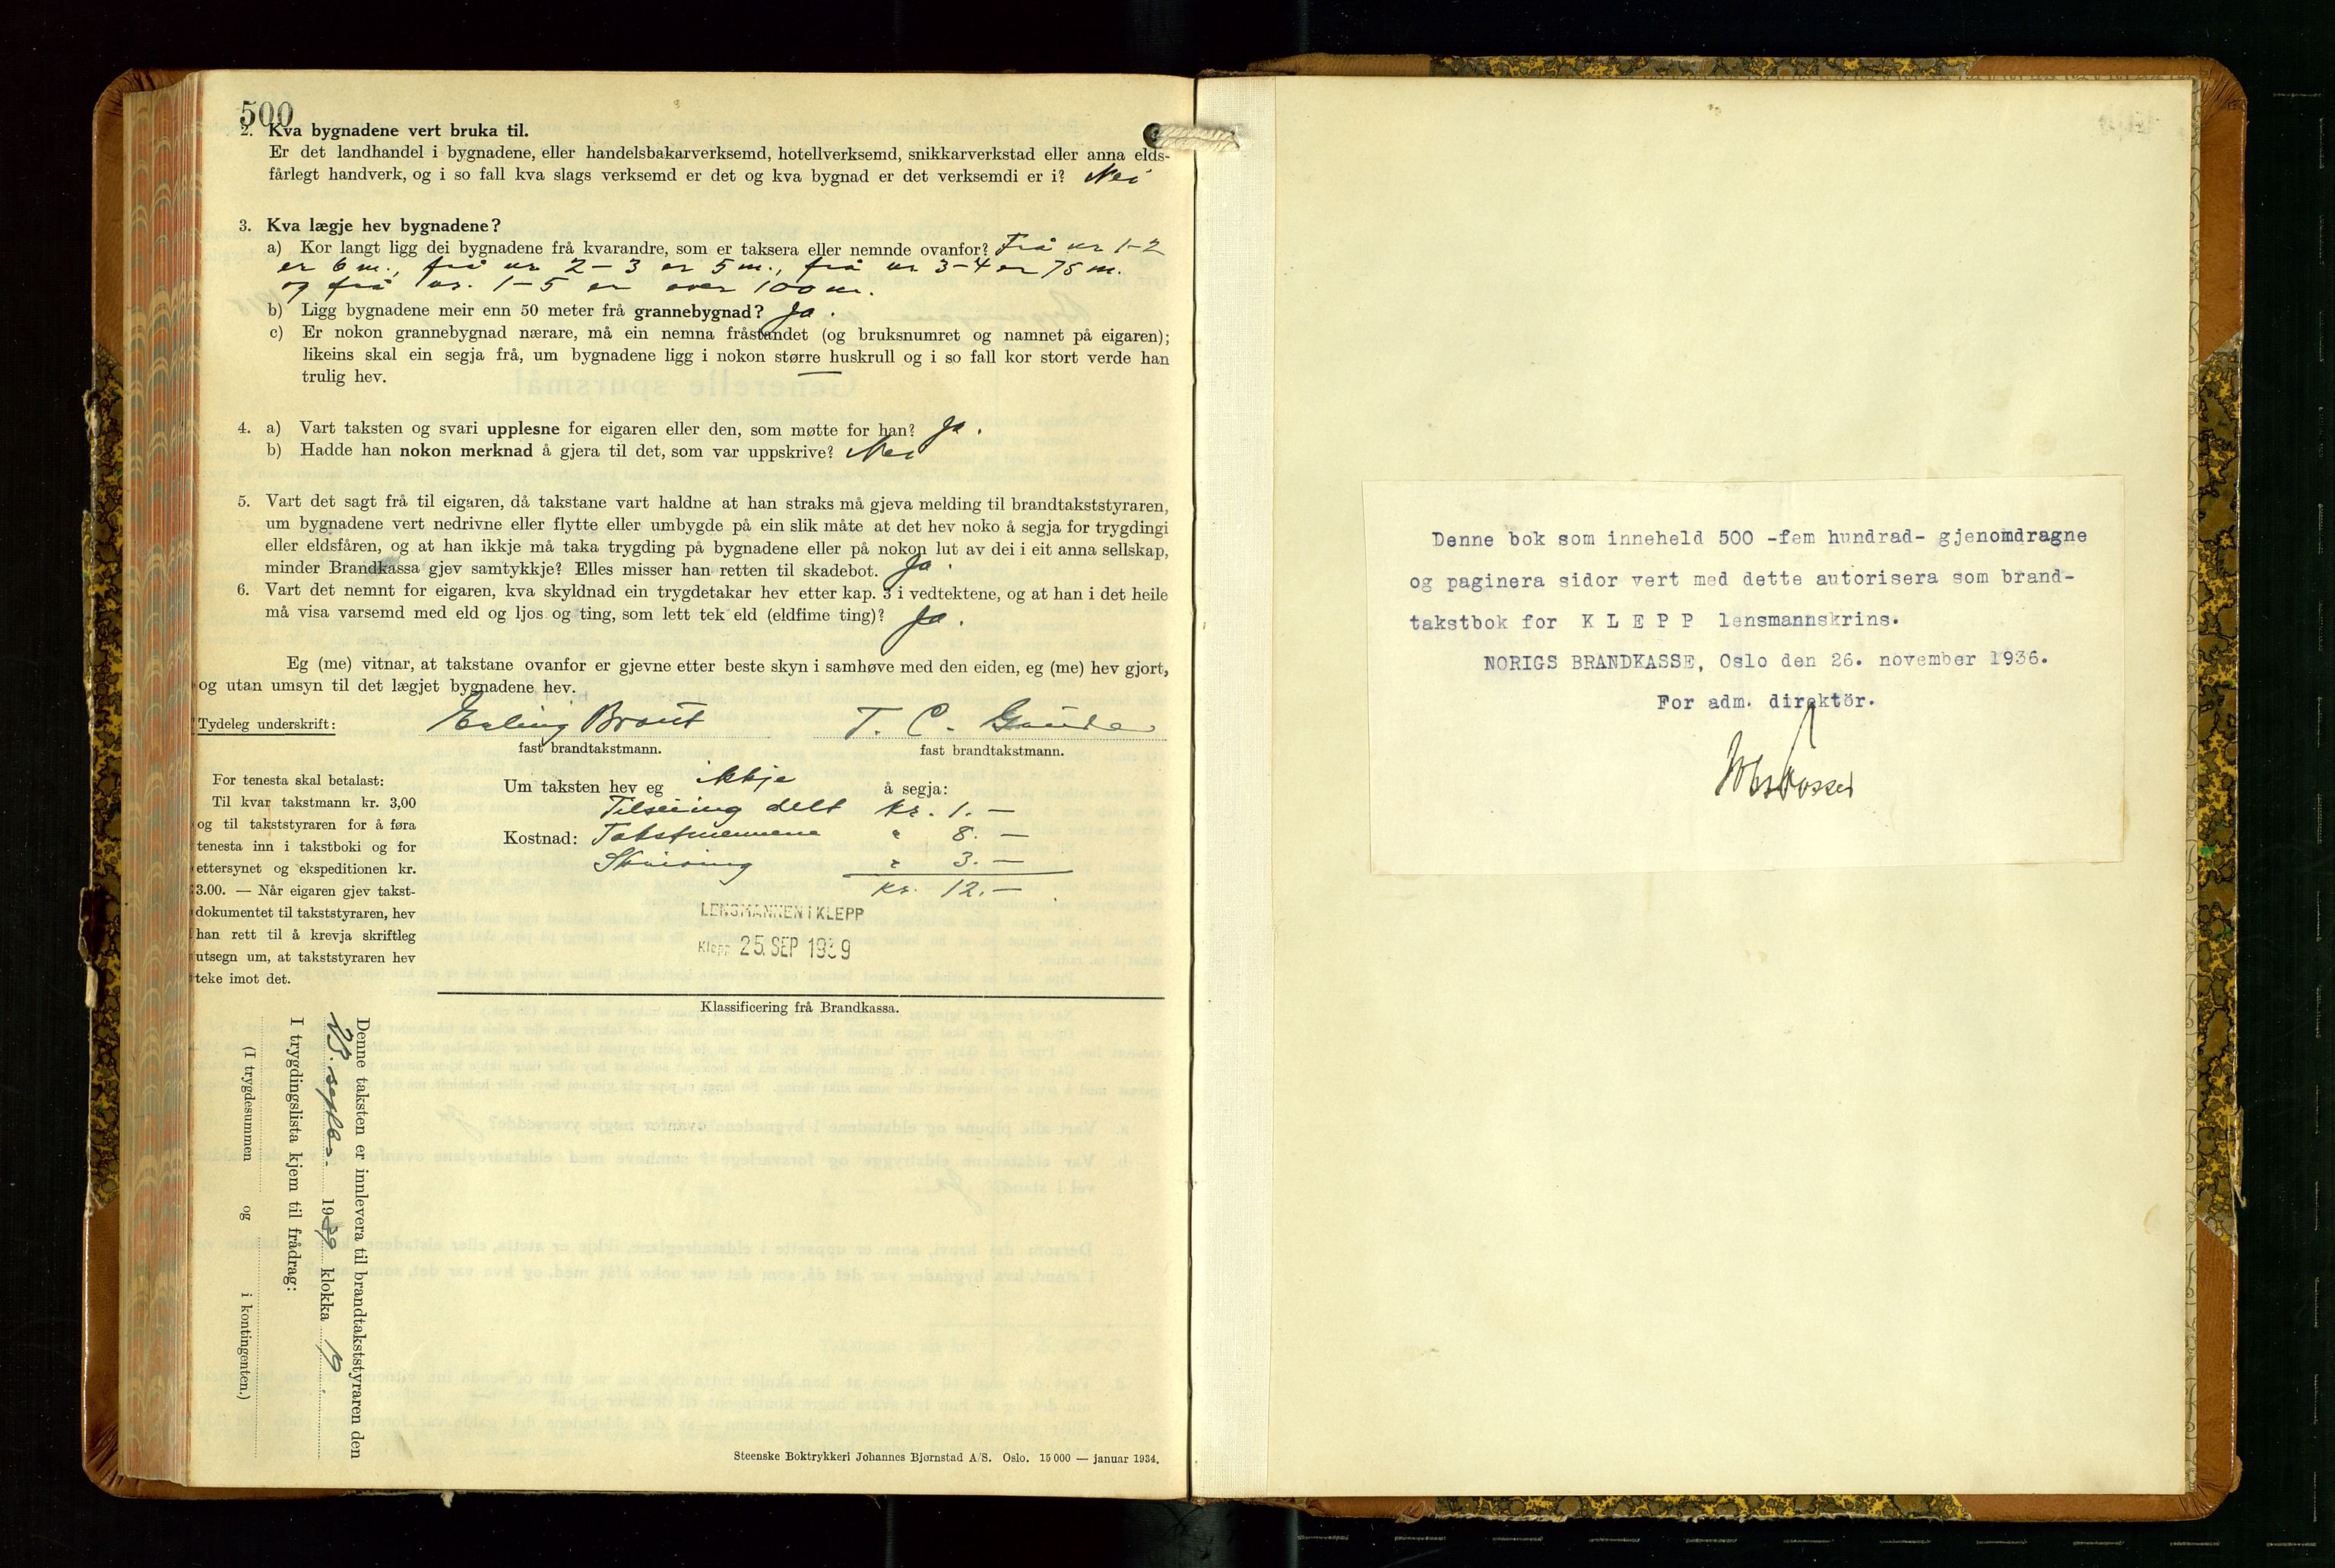 500
2. Kva bygnadene vert bruka til.
Er det landhandel i bygnadene, eller handelsbakarverksemd, hotellverksemd, snikkarverkstad eller anna elds-
fårlegt handverk, og i so fall kva slags verksemd er det og kva bygnad er det verksemdi er i? Nei
3. Kva lægje hev bygnadene?
a) Kor langt ligg dei bygnadene frå kvarandre, som er taksera eller nemnde ovanfor? Frå nr 1-2
er 6 m., frå nr 2-3 er 5 m., frå nr 3-4 er 75 m.
og frå nr. 1-5 er over 100 m.
b) Ligg bygnadene meir enn 50 meter frå grannebygnad? Ja.
c) Er nokon grannebygnad nærare, må ein nemna fråstandet (og bruksnumret og namnet på eigaren);
likeins skal ein segja frå, um bygnadene ligg i nokon større huskrull og i so fall kor stort verde han
trulig hev. —
4. a) Vart taksten og svari upplesne for eigaren eller den, som møtte for han? Ja.
b) Hadde han nokon merknad å gjera til det, som var uppskrive? Nei
5. Vart det sagt frå til eigaren, då takstane vart haldne at han straks må gjeva melding til brandtakststyraren,
um bygnadene vert nedrivne eller flytte eller umbygde på ein slik måte at det hev noko å segja for trygdingi
eller eldsfåren, og at han ikkje må taka trygding på bygnadene eller på nokon lut av dei i eit anna sellskap,
minder Brandkassa gjev samtykkje? Elles misser han retten til skadebot. Ja.
6. Vart det nemnt for eigaren, kva skyldnad ein trygdetakar hev etter kap. 3 i vedtektene, og at han i det heile
må visa varsemd med eld og ljos og ting, som lett tek eld (eldfime ting)? Ja.
Eg (me) vitnar, at takstane ovanfor er gjevne etter beste skyn i samhøve med den eiden, eg (me) hev gjort,
og utan umsyn til det lægjet bygnadene hev.
Tydeleg underskrift: Erling Braut T. C.
fast brandtakstmann. fast brandtakstmann.
For tenesta skal betalast:
Til kvar takstmann kr. 3,00
og til takststyraren for å føra
tenesta inn i takstboki og for
ettersynet og ekspeditionen kr.
3.00. — Når eigaren gjev takst-
dokumentet til takststyraren, hev
han rett til å krevja skriftleg
utsegn um, at takststyraren hev
teke imot det.
Um taksten hev eg ikkje å segja:
Tilseiing delt kr. 1.—
Kostnad: Takstmennene " 8.—
Skrivning " 3.—
kr. 12.—
LENSMANNEN I KLEPP
Klepp 25. SEP 1939
Klassificering frå Brandkassa.
Denne taksten er innlevera til brandtakststyraren den
25. septbr. 1939 klokka 19.
I trygdingslista kjem til frådrag:
(I trygdesummen og i kontingenten.)
Steenske Boktrykkeri Johannes Bjørnstad A/S. Oslo. 15000 — januar 1934.
Denne bok som inneheld 500 -fem hundrad- gjenomdragne
og paginera sidor vert med dette autorisera som brand-
takstbok for K L E P P lensmannskrins.
NORIGS BRANDKASSE, Oslo den 26. november 1936.
For adm. direktör.